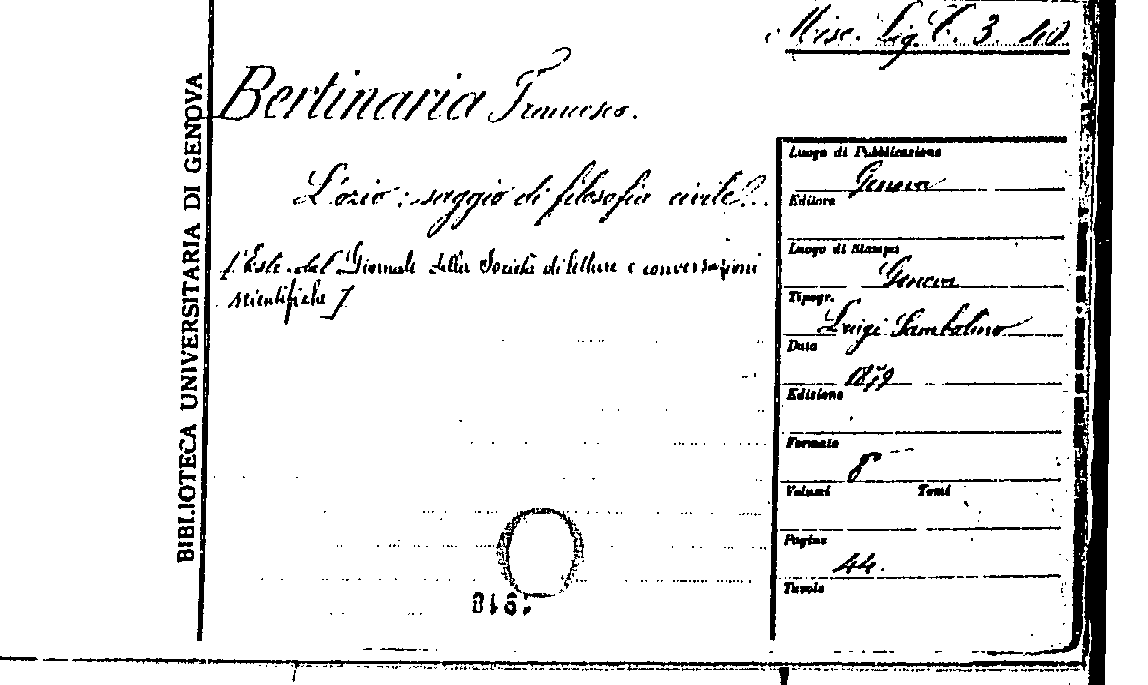 Misc. Lig. C. 3. 40
BIBLIOTECA UNIVERSITARIA DI GENOVA
Bertinaria Francesco.
L'ozio: saggio di filosofia civile.
[Estr. dal Giornale della Società di letture e conversazioni
scientifiche]
Luogo di Pubblicazione
Genova
Editore
Luogo di Stampa
Genova
Tipogr.
Luigi Sambolino
Data
1879
Edizione
Formato
8°
Volumi Tomi
Pagine
44.
Tavole